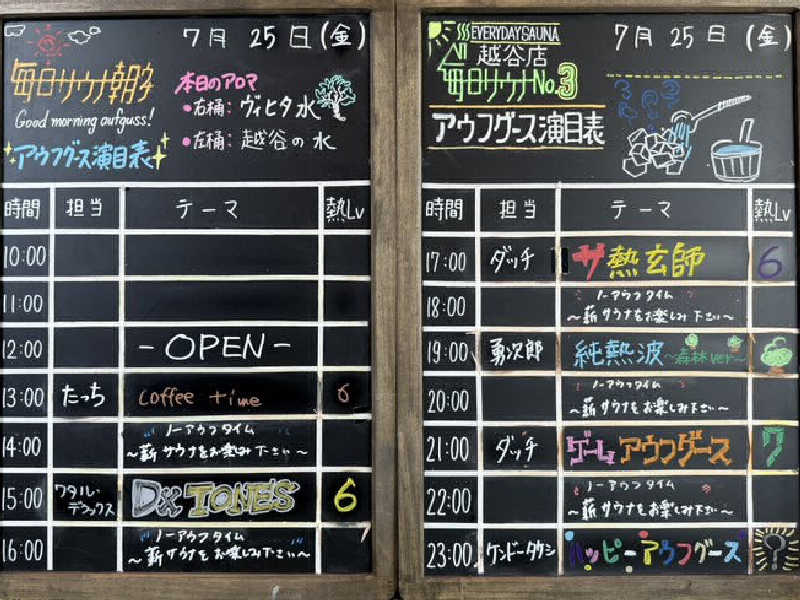 7月 25日(金)
毎日サウナ朝子
Good morning aufguss!
アウフグース演目表
本日のアロマ
●右桶: ヴィヒタ水
●左桶: 越谷の水
時間 担当 テーマ 熱Lv
10:00
11:00
12:00 -OPEN-
13:00 たっち coffee time 6
14:00 ノーアウフタイム
～薪サウナをお楽み下さい～
15:00 ワタル・デラックス DX TONES 6
16:00 ノーアウフタイム
～薪サウナをお楽み下さい～
EVERYDAY SAUNA
越谷店
毎日サウナNo.3
7月 25日 (金)
アウフグース演目表
時間 担当 テーマ 熱Lv
17:00 ダッチ ザ熱玄師 6
18:00 ノーアウフタイム
～薪サウナをお楽しみ下さい～
19:00 勇次郎 純熱波～森林ver～
20:00 ノーアウフタイム
～薪サウナをお楽しみ下さい～
21:00 ダッチ ゲームアウフグース 7
22:00 ノーアウフタイム
～薪サウナをお楽しみ下さい～
23:00 ケンドータケシ ハッピーアウフグース ?